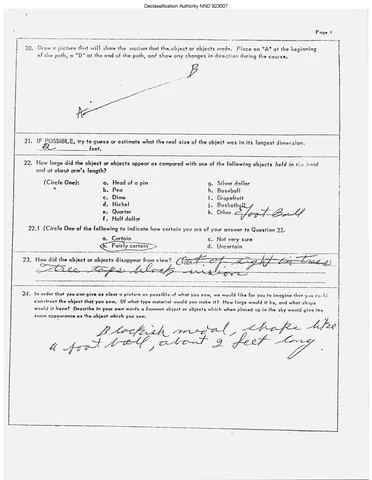 Declassification Authority NND 923007
Page 4
20. Draw a picture that will show the motion that the object or objects made. Place an "A" at the beginning
of the path, a "B" at the end of the path, and show any changes in direction during the course.
B
A
21. IF POSSIBLE, try to guess or estimate what the real size of the object was in its longest dimension.
2 feet.
22. How large did the object or objects appear as compared with one of the following objects held in the hand
and at about arm's length?
(Circle One): a. Head of a pin g. Silver dollar
b. Pea h. Baseball
c. Dime i. Grapefruit
d. Nickel j. Basketball
e. Quarter k. Other Foot Ball
f. Half dollar
22.1 (Circle One of the following to indicate how certain you are of your answer to Question 22.
a. Certain c. Not very sure
b. Fairly certain d. Uncertain
23. How did the object or objects disappear from view? Out of sight in trees
tree tops block vision
24. In order that you can give as clear a picture as possible of what you saw, we would like for you to imagine that you could
construct the object that you saw. Of what type material would you make it? How large would it be, and what shape
would it have? Describe in your own words a common object or objects which when placed up in the sky would give the
same appearance as the object which you saw.
Blackish medal, shape like
a foot ball, about 2 feet long.